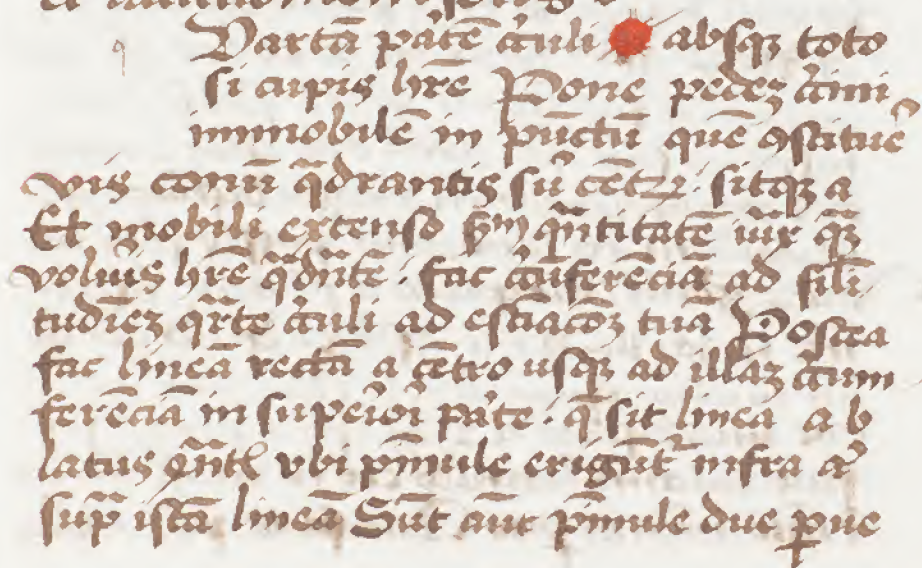 Quartā ꝑtē ċculi absqꝫ toto
si cupis hr̄e Pone pedeꝫ ċcini
immobilē in pūctū quē ꝯstituē
vis conū qͣdrantis sū cētꝝ · sitqꝫ a
Et mobili extenso ẜm qͣntitatē
voluis hr̄e qͣdn̄tē · fac ċcūferēciā ad sil̄i
tudīeꝫ qr̄te ċculi ad estīacōꝫ tuā Postea
fac lineā rectā a cētro usqꝫ ad illaꝫ ċcum
ferēciā in suꝑiori ꝑte · q̄ sit linea a b
latus qͣnt vbi pīnule erigūtʳ infra
supͣ istā lineā Sūt aūt pīnule due ꝑue